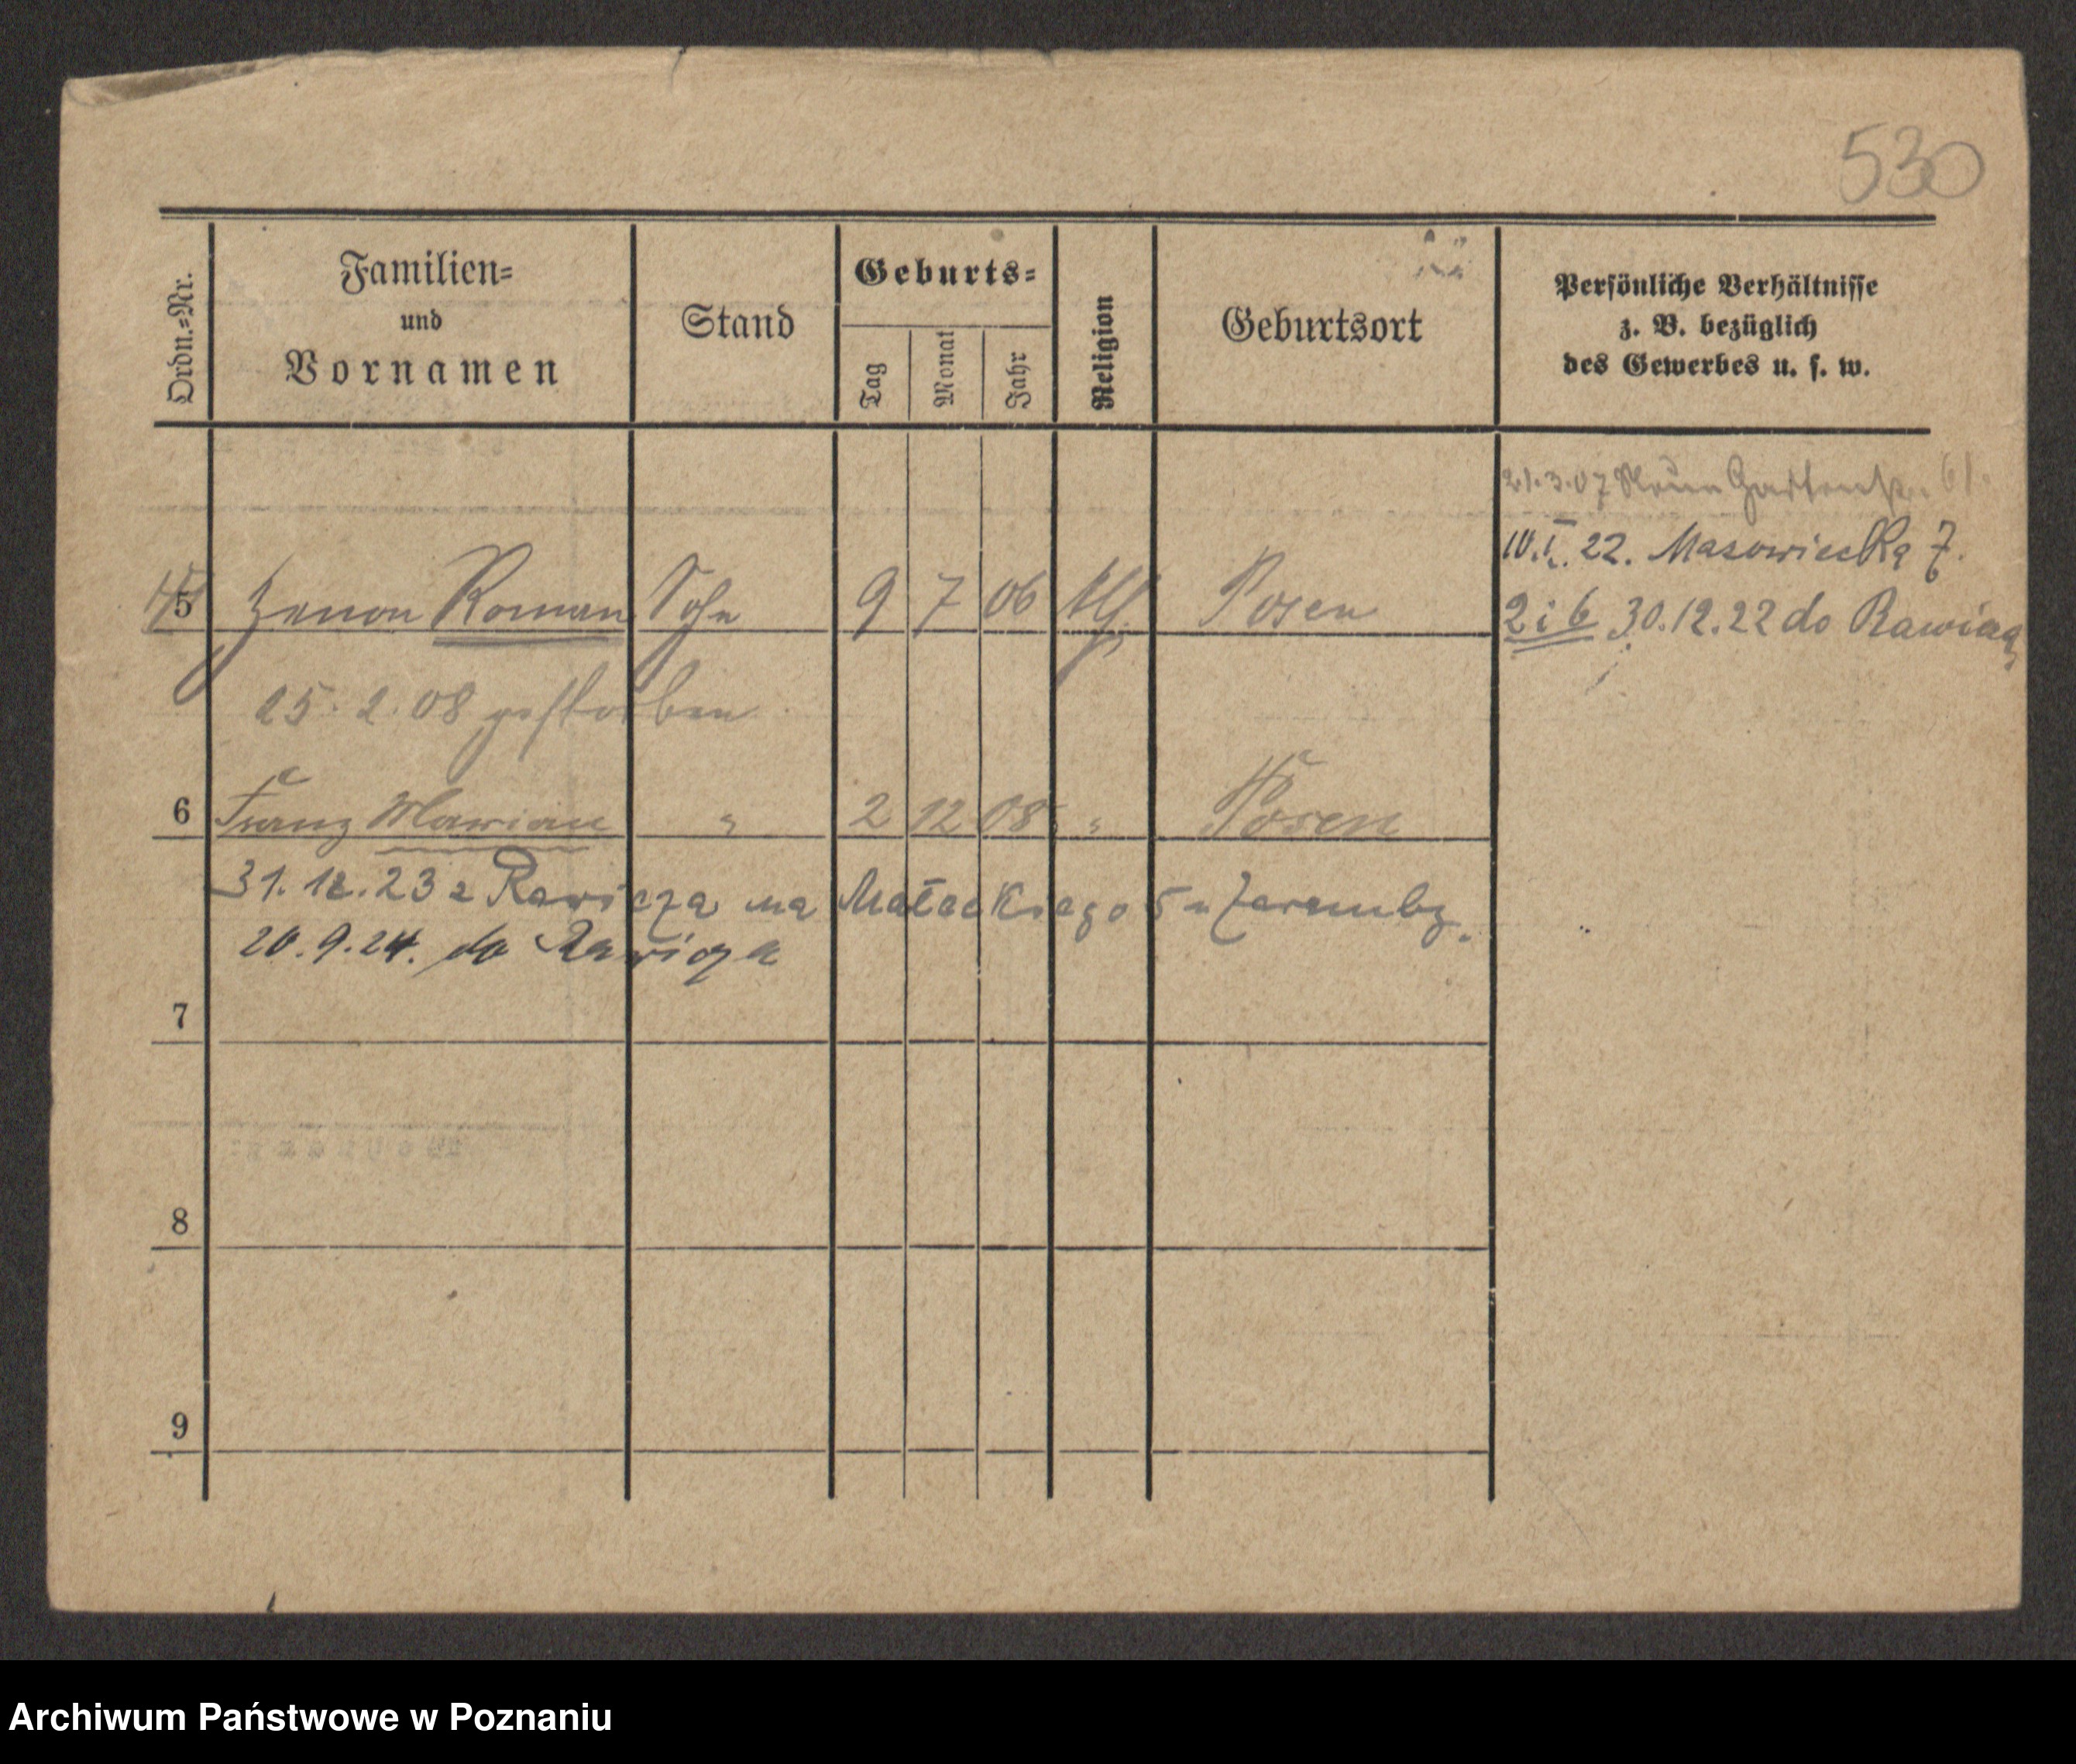 530
Ordn.=Nr.
Familien=
und
Vornamen
Stand
Geburts=
Tag
Monat
Jahr
Religion
Geburtsort
Persönliche Verhältnisse
z. B. bezüglich
des Gewerbes u. s. w.
21.3.07 Gartenstr. 61.
10.I.22. Masowiecka 7.
5 Zenon Roman Sohn 9 7 06 Posen
2 i 6 30.12.22 do Rawicza
25.2.08 gestorben
6 Franz Marian " 2 12 08 " Posen
31.12.23 z Rawicza na Małeckiego 5 u Zaremby.
20.9.24. do Rawicza
7
8
9
Archiwum Państwowe w Poznaniu